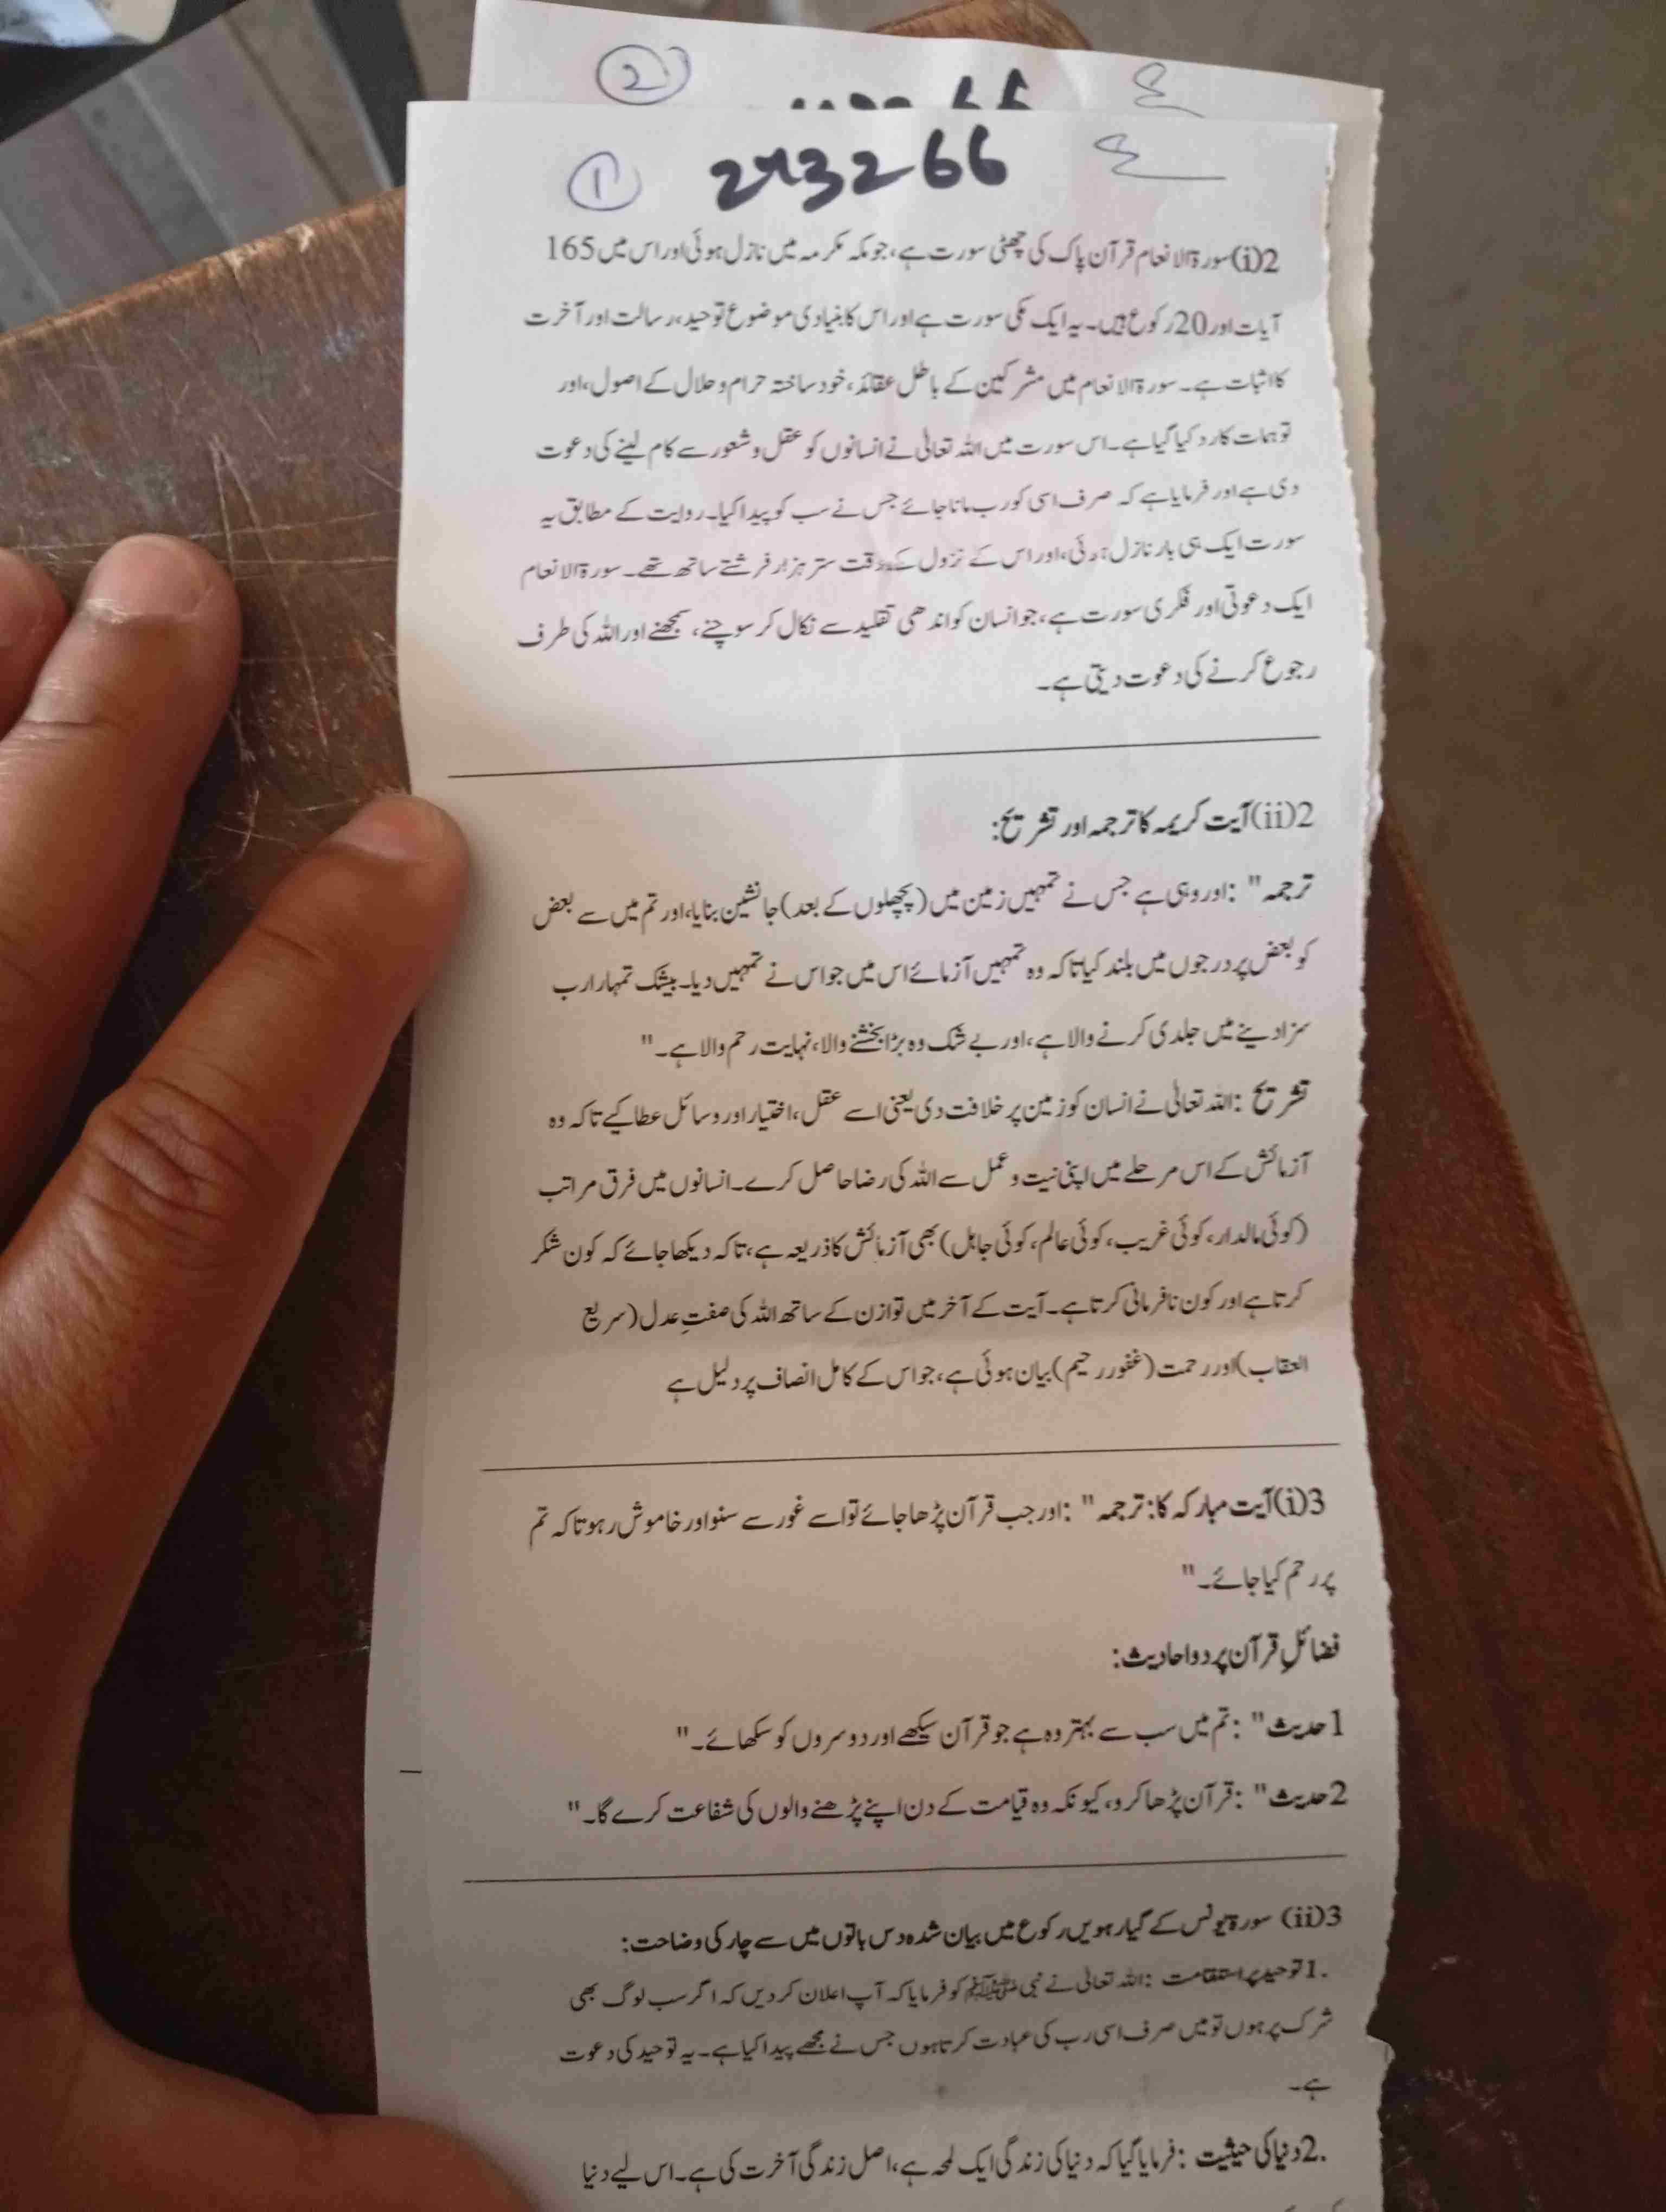 2
1
273266
2(i) سورۃ الانعام قرآن پاک کی چھٹی سورت ہے، جو مکہ مکرمہ میں نازل ہوئی اور اس میں 165
آیات اور 20 رکوع ہیں۔ یہ ایک مکی سورت ہے اور اس کا بنیادی موضوع توحید، رسالت اور آخرت
کا اثبات ہے۔ سورۃ الانعام میں مشرکین کے باطل عقائد، خود ساختہ حرام و حلال کے اصول، اور
توہمات کا رد کیا گیا ہے۔ اس سورت میں اللہ تعالیٰ نے انسانوں کو عقل و شعور سے کام لینے کی دعوت
دی ہے اور فرمایا ہے کہ صرف اسی کو رب مانا جائے جس نے سب کو پیدا کیا۔ روایت کے مطابق یہ
سورت ایک ہی بار نازل ہوئی، اور اس کے نزول کے وقت ستر ہزار فرشتے ساتھ تھے۔ سورۃ الانعام
ایک دعوتی اور فکری سورت ہے، جو انسان کو اندھی تقلید سے نکال کر سوچنے، سمجھنے اور اللہ کی طرف
رجوع کرنے کی دعوت دیتی ہے۔
2(ii) آیت کریمہ کا ترجمہ اور تشریح:
ترجمہ" : اور وہی ہے جس نے تمہیں زمین میں (پچھلوں کے بعد) جانشین بنایا، اور تم میں سے بعض
کو بعض پر درجوں میں بلند کیا تاکہ وہ تمہیں آزمائے اس میں جو اس نے تمہیں دیا۔ بیشک تمہارا رب
سزا دینے میں جلدی کرنے والا ہے، اور بے شک وہ بڑا بخشنے والا، نہایت رحم والا ہے۔"
تشریح : اللہ تعالیٰ نے انسان کو زمین پر خلافت دی یعنی اسے عقل، اختیار اور وسائل عطا کیے تاکہ وہ
آزمائش کے اس مرحلے میں اپنی نیت و عمل سے اللہ کی رضا حاصل کرے۔ انسانوں میں فرق مراتب
(کوئی مالدار، کوئی غریب، کوئی عالم، کوئی جاہل) بھی آزمائش کا ذریعہ ہے، تاکہ دیکھا جائے کہ کون شکر
کرتا ہے اور کون نافرمانی کرتا ہے۔ آیت کے آخر میں توازن کے ساتھ اللہ کی صفتِ عدل (سریع
العقاب) اور رحمت (غفور رحیم) بیان ہوئی ہے، جو اس کے کامل انصاف پر دلیل ہے
3(i) آیت مبارکہ کا: ترجمہ" : اور جب قرآن پڑھا جائے تو اسے غور سے سنو اور خاموش رہو تاکہ تم
پر رحم کیا جائے۔"
فضائلِ قرآن پر دو احادیث:
1 حدیث" : تم میں سب سے بہتر وہ ہے جو قرآن سیکھے اور دوسروں کو سکھائے۔"
2 حدیث" : قرآن پڑھا کرو، کیونکہ وہ قیامت کے دن اپنے پڑھنے والوں کی شفاعت کرے گا۔"
3(ii) سورۃ یونس کے گیارہویں رکوع میں بیان شدہ دس باتوں میں سے چار کی وضاحت:
.1 توحید پر استقامت : اللہ تعالیٰ نے نبی ﷺ کو فرمایا کہ آپ اعلان کر دیں کہ اگر سب لوگ بھی
شرک پر ہوں تو میں صرف اسی رب کی عبادت کرتا ہوں جس نے مجھے پیدا کیا ہے۔ یہ توحید کی دعوت
ہے۔
.2 دنیا کی حیثیت : فرمایا گیا کہ دنیا کی زندگی ایک لمحہ ہے، اصل زندگی آخرت کی ہے۔ اس لیے دنیا